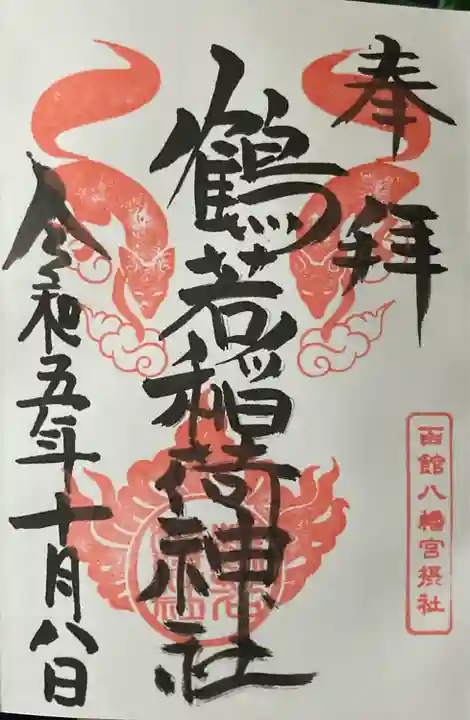 奉拝
函館八幡宮摂社
鶴若稲荷神社
令和五年十月八日